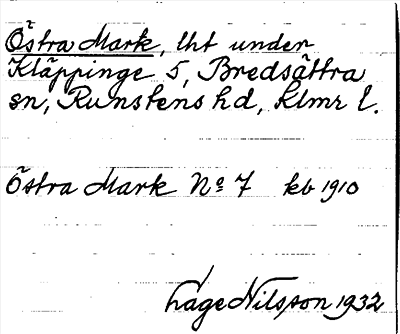 Östra Mark, lht under
Kläppinge 5, Bredsättra
sn, Runstens hd, Klmr l.
Östra Mark No 7 kb 1910
Hage Nilsson 1932